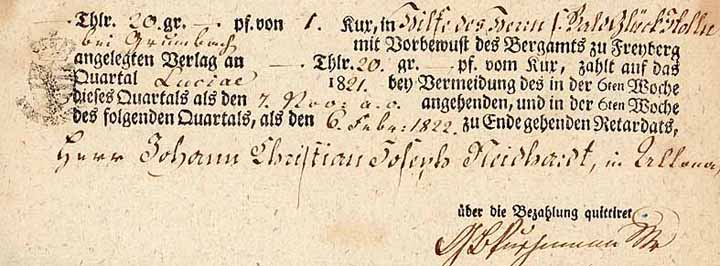 — Thlr. 20. gr. — pf. von 1. Kux, in Hilfe des Herrn s. Bald Glück Stolln
bei Grumbach mit Vorbewust des Bergamts zu Freyberg
angelegten Verlag an — Thlr. 20. gr. — pf. vom Kux, zahlt auf das
Quartal Luciae 1821. bey Vermeidung des in der 6ten Woche
dieses Quartals als den 7. Nov: a. c. angehenden, und in der 6ten Woche
des folgenden Quartals, als den 6. Febr: 1822. zu Ende gehenden Retardats,
Herr Johann Christian Joseph Neidhardt, in Altona,
über die Bezahlung quittiret